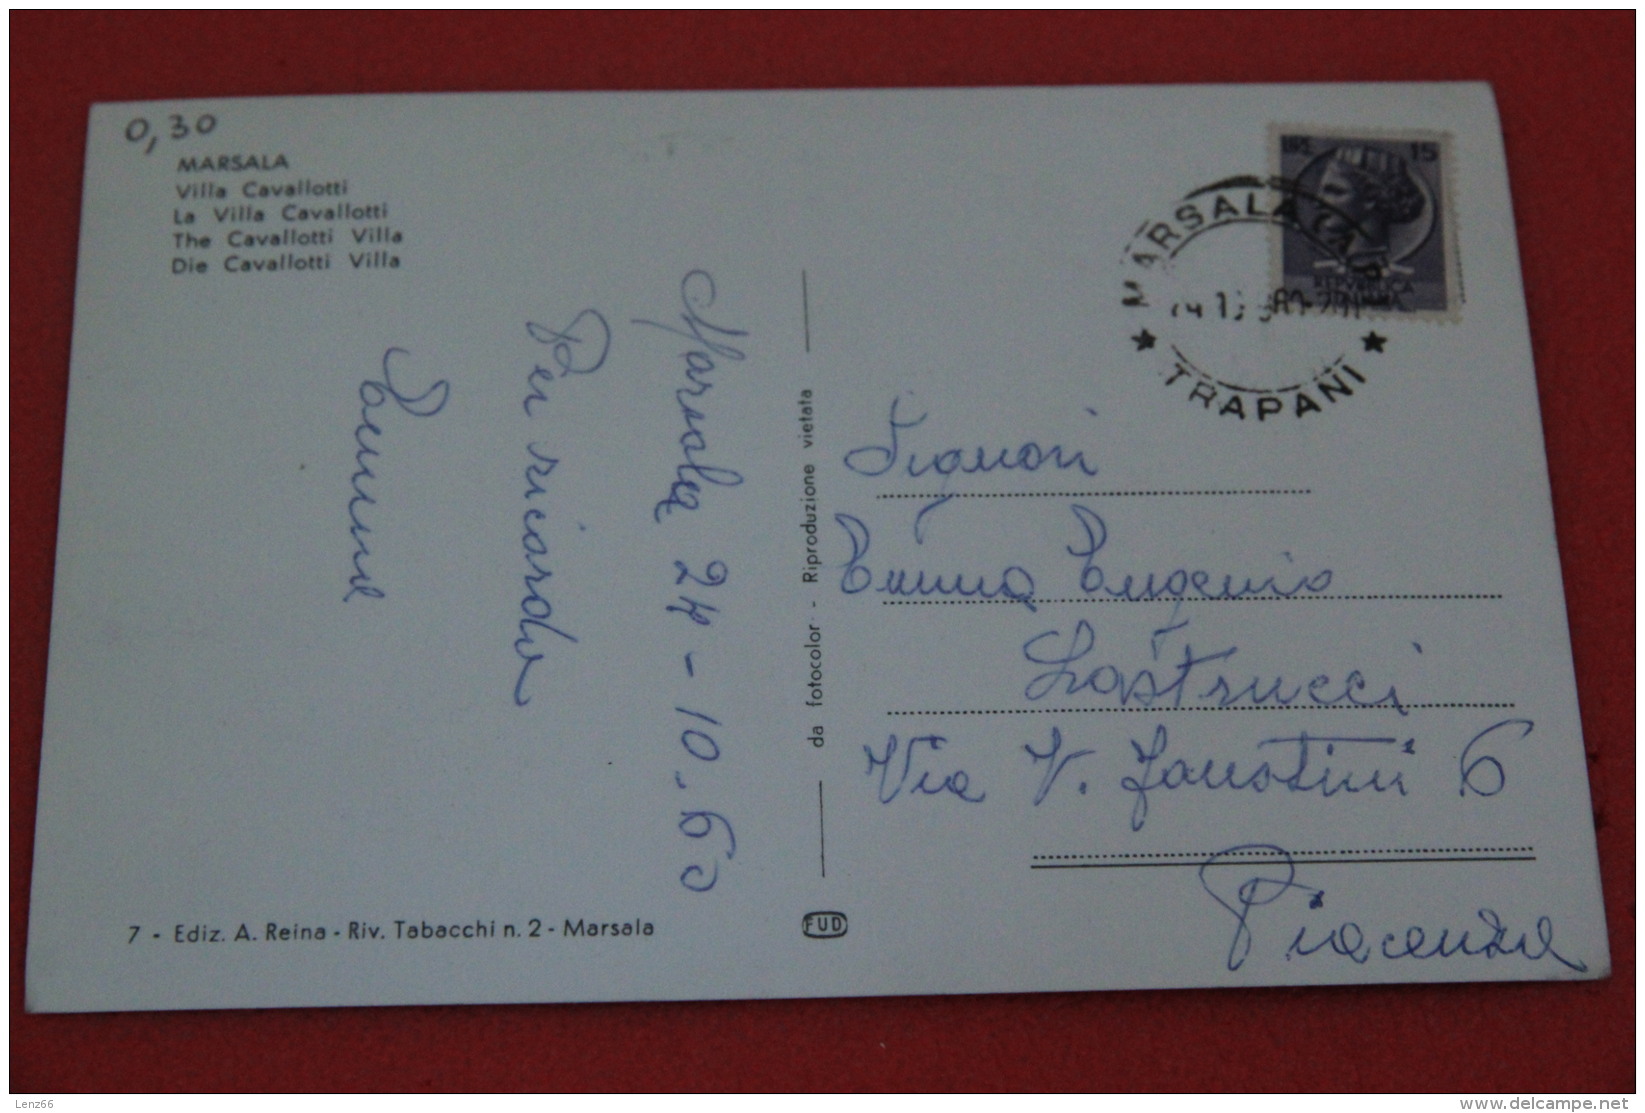 0,30
MARSALA
Villa Cavallotti
La Villa Cavallotti
The Cavallotti Villa
Die Cavallotti Villa
Marsala 24-10.60
Per ricordo
7 - Ediz. A. Reina - Riv. Tabacchi n. 2 - Marsala
da fotocolor - Riproduzione vietata
FUD
LIRE 15
REPVBBLICA
MARSALA
TRAPANI
Signori
Eugenio
Lastrucci
Via V. Faustini 6
Piacenza
Lenz66
delcampe.net